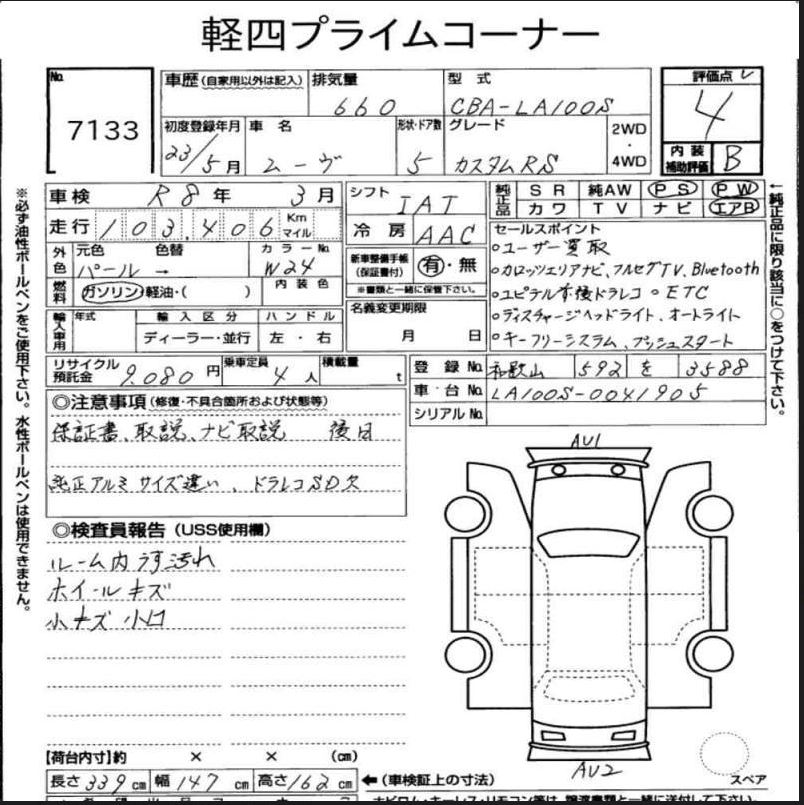 軽四プライムコーナー
No. 7133
車歴（自家用以外は記入） 排気量 660 型式 CBA-LA100S
評価点 4
初度登録年月 23/5月 車名 ムーヴ 形状・ドア数 5 グレード カスタムRS 2WD・4WD
内装補助評価 B
車検 R8年 3月
走行 103,406 Km マイル
シフト IAT
冷房 AAC
純正品 SR 純AW PS PW
カワ TV ナビ エアB
外色 元色 パール 色替 → カラーNo. W24
燃料 ガソリン・軽油・( ) 内装色
新車整備手帳（保証書付） 有・無
※書類と一緒に保管下さい。
輸入車用 年式 輸入区分 ディーラー・並行 ハンドル 左・右
名義変更期限 月 日
セールスポイント
○ユーザー買取
○カロッツェリアナビ、フルセグTV、Bluetooth
○ユピテル前後ドラレコ ○ETC
○ディスチャージヘッドライト、オートライト
○キーフリーシステム、プッシュスタート
リサイクル預託金 9,080円 乗車定員 4人 積載量 t
登録No. 和歌山 592 を 3588
車台No. LA100S-0041905
シリアルNo.
◎注意事項（修復・不具合箇所および状態等）
保証書、取説、ナビ取説 後日
純正アルミサイズ違い、ドラレコSD欠
◎検査員報告（USS使用欄）
ルーム内うす汚れ
ホイールキズ
小キズ 小凹
AU1
AU2
スペア
【荷台内寸】約 × × (cm)
長さ339cm 幅147cm 高さ162cm ←（車検証上の寸法）
※必ず油性ボールペンをご使用下さい。水性ボールペンは使用できません。
←純正品に限り該当に○をつけて下さい。